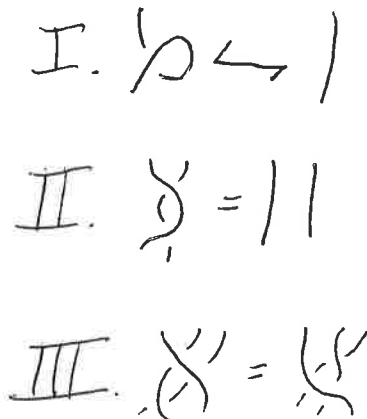 I.
II. =
III. =